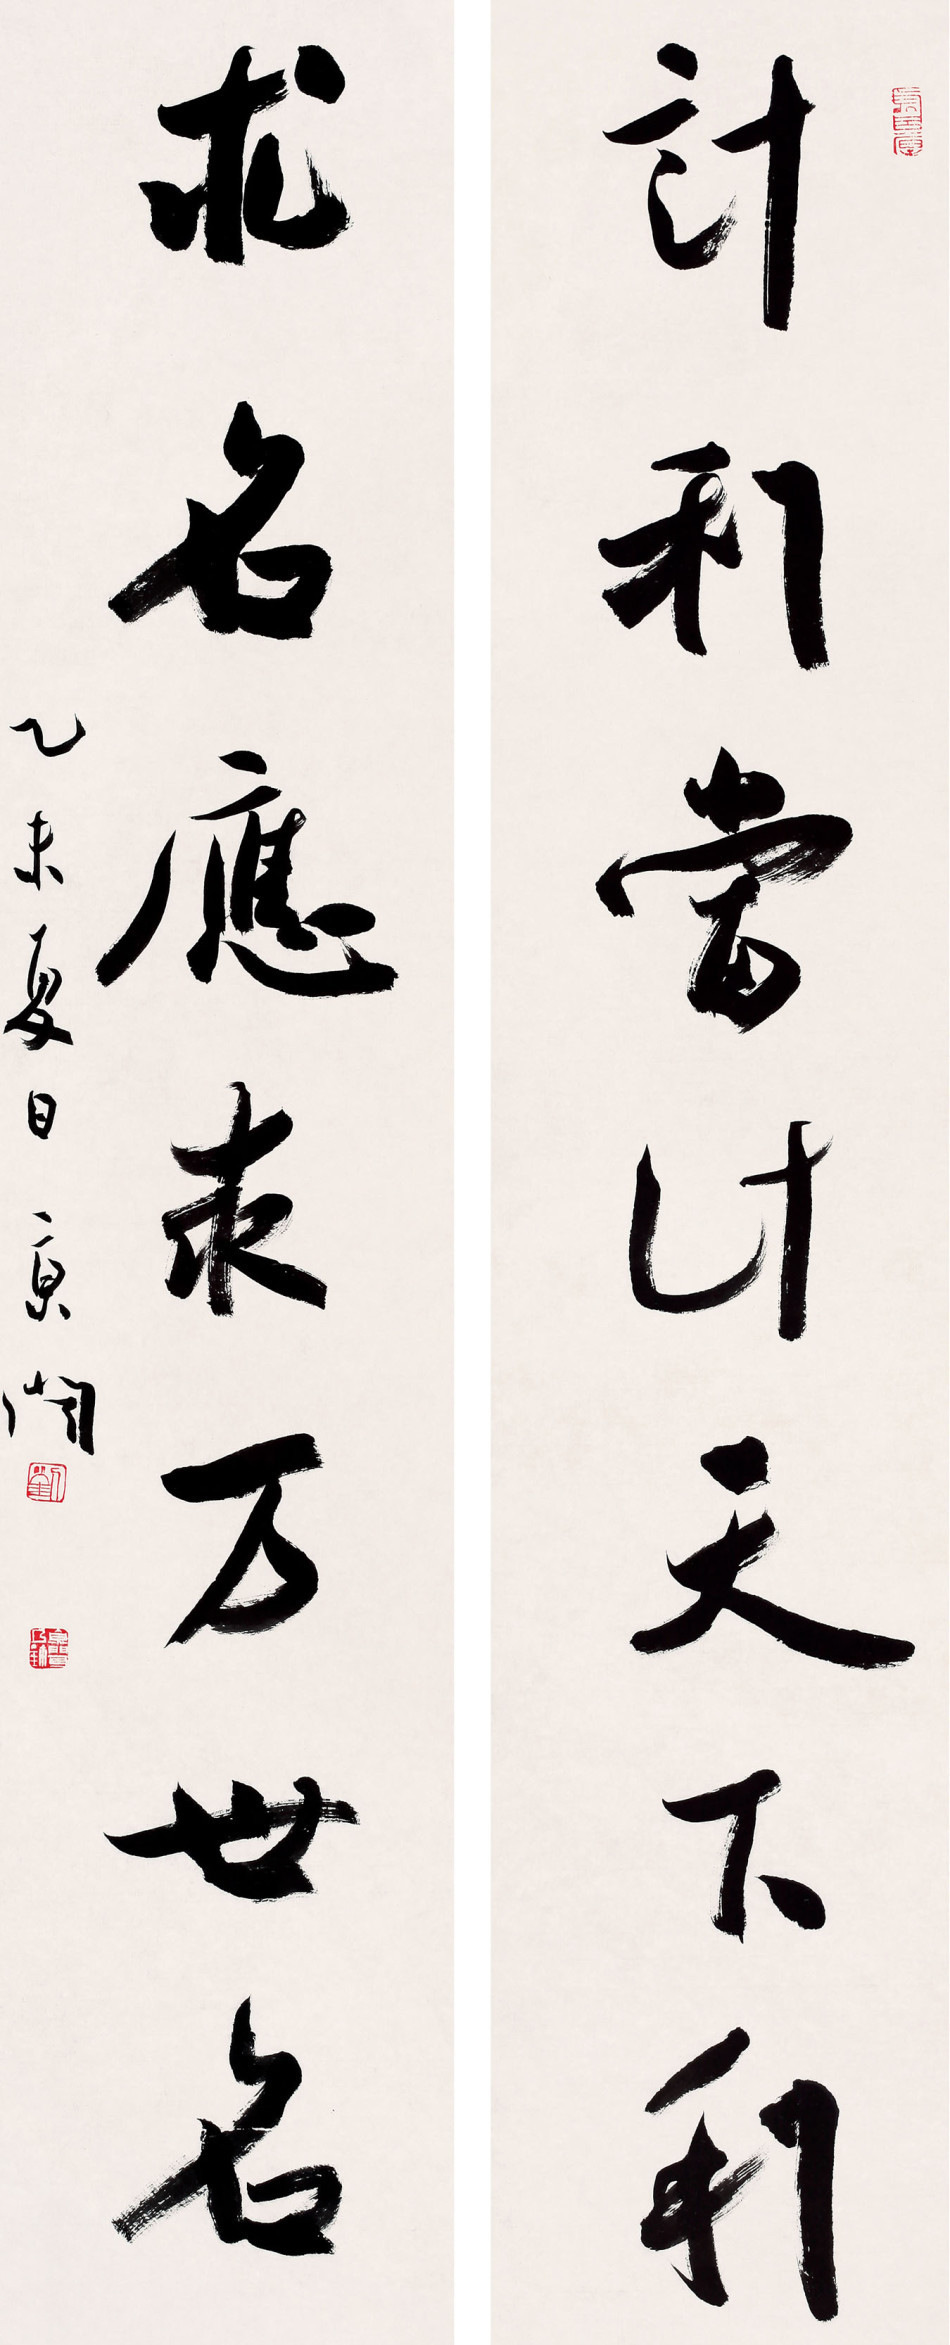 計利當计天下利
求名應求万世名
乙未夏日京閘